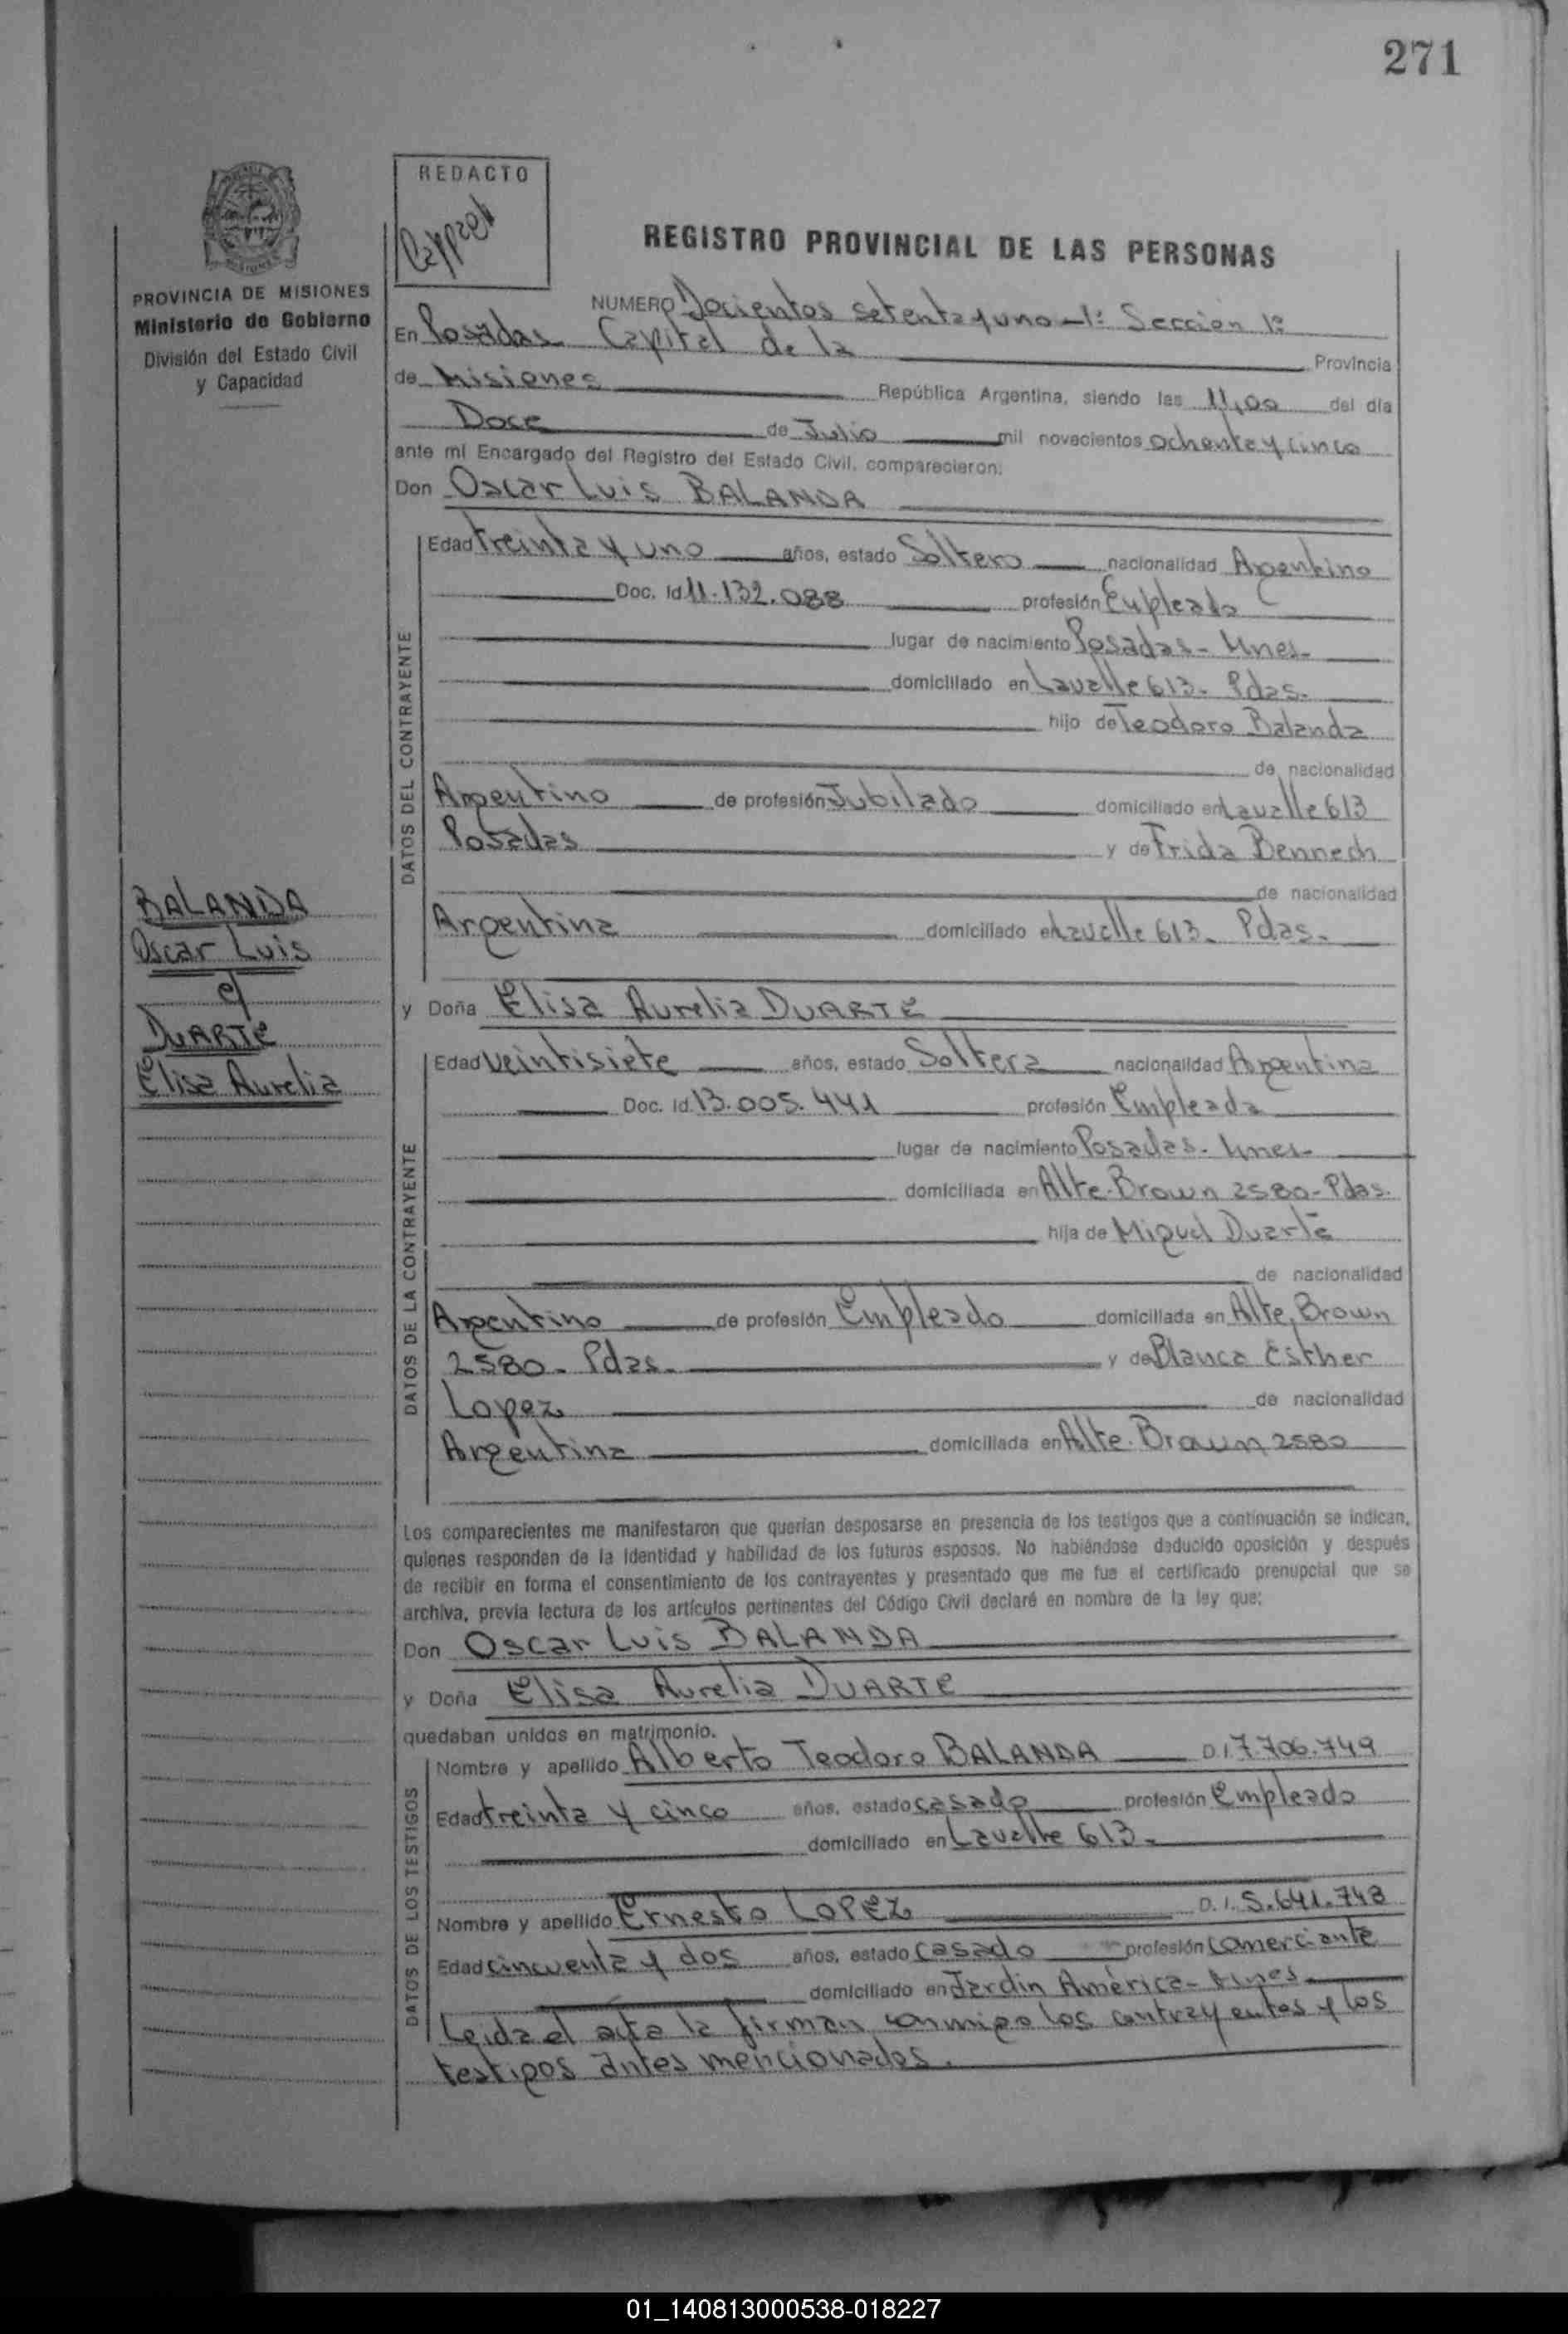 271
REDACTO
REGISTRO PROVINCIAL DE LAS PERSONAS
PROVINCIA DE MISIONES
Ministerio de Gobierno
División del Estado Civil
y Capacidad
NUMERO Docientos setenta y uno - 1ª Sección 1ª
En Posadas Capital de la Provincia
de Misiones República Argentina, siendo las 11,00 del día
Doce de Julio mil novecientos ochenta y cinco
ante mi Encargado del Registro del Estado Civil, comparecieron:
Don Oscar Luis BALANDA
DATOS DEL CONTRAYENTE
Edad treinta y uno años, estado Soltero nacionalidad Argentino
Doc. Id 11.132.088 profesión Empleado
lugar de nacimiento Posadas - Mnes.
domiciliado en Lavalle 613. Pdas.
hijo de Teodoro Balanda
de nacionalidad
Argentino de profesión Jubilado domiciliado en Lavalle 613
Posadas y de Frida Bennech
de nacionalidad
Argentina domiciliado en Lavalle 613. Pdas.
BALANDA
Oscar Luis
c/
DUARTE
Elisa Aurelia
y Doña Elisa Aurelia DUARTE
DATOS DE LA CONTRAYENTE
Edad Veintisiete años, estado Soltera nacionalidad Argentina
Doc. Id. 13.005.441 profesión Empleada
lugar de nacimiento Posadas - Mnes.
domiciliada en Alte. Brown 2580 - Pdas.
hija de Miguel Duarte
de nacionalidad
Argentino de profesión Empleado domiciliada en Alte. Brown
2580 - Pdas. y de Blanca Esther
Lopez de nacionalidad
Argentina domiciliada en Alte. Brown 2580
Los comparecientes me manifestaron que querían desposarse en presencia de los testigos que a continuación se indican,
quienes responden de la identidad y habilidad de los futuros esposos. No habiéndose deducido oposición y después
de recibir en forma el consentimiento de los contrayentes y presentado que me fue el certificado prenupcial que se
archiva, previa lectura de los artículos pertinentes del Código Civil declaré en nombre de la ley que:
Don Oscar Luis BALANDA
y Doña Elisa Aurelia DUARTE
quedaban unidos en matrimonio.
DATOS DE LOS TESTIGOS
Nombre y apellido Alberto Teodoro BALANDA D.I. 7.706.749
Edad treinta y cinco años, estado casado profesión Empleado
domiciliado en Lavalle 613.
Nombre y apellido Ernesto LOPEZ D.I. 5.641.748
Edad cincuenta y dos años, estado casado profesión comerciante
domiciliado en Jardín América - Mnes.
Leida el acta la firman conmigo los contrayentes y los
testigos antes mencionados.
01_140813000538-018227